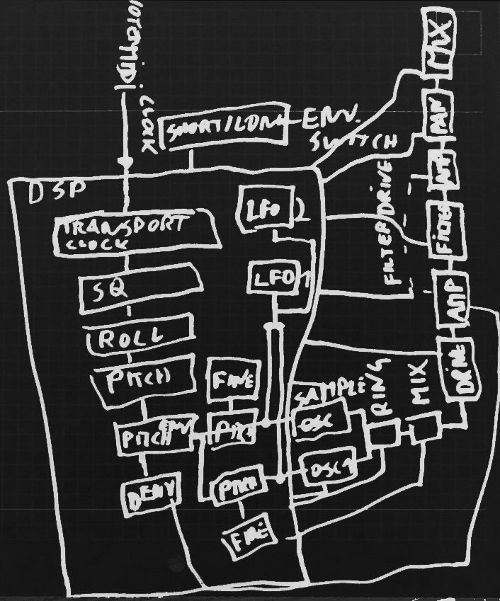 CLOCK
SHORT/LONG
ENV.
SWITCH
MIX
PAN
FILTER DRIVE
FILTER
AMP
DRIVE
DSP
TRANSPORT
CLOCK
SQ
ROLL
PITCH
PITCH ENV
LFO 2
LFO 1
FINE
PITCH
SAMPLE
OSC
RING
MIX
OSC
PITCH
FINE